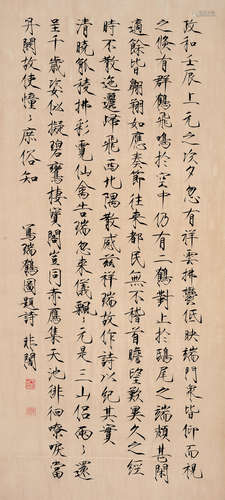 政和壬辰上元之次夕忽有祥雲拂鬱低映端門衆皆仰而視
之倏有群鶴飛鳴於空中仍有二鶴對止於鴟尾之端頗甚閑
適餘皆翱翔如應奏節往來都民無不稽首瞻望歎異久之經
時不散迤邐歸飛西北隅散感茲祥瑞故作詩以紀其實
清曉觚稜拂彩霓仙禽告瑞忽來儀飄〻元是三山侶兩〻還
呈千歲姿似擬碧鸞棲寶閣豈同赤鴈集天池徘徊嘹唳當
丹闕故使憧〻庶俗知
寫瑞鶴圖題詩 非闇